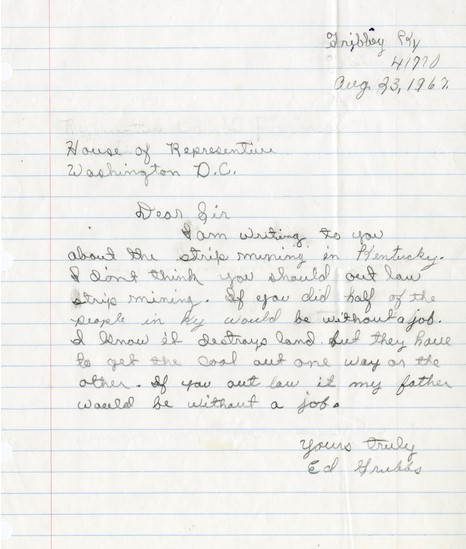 Tribbey Ky
41770
Aug. 23, 1967.
House of Representive
Washington D.C.
Dear Sir
I am writing to you
about the strip mining in Kentucky.
I don't think you should out law
strip mining. If you did half of the
people in Ky would be without a job.
I know it destroys land but they have
to get the coal out one way or the
other. If you out law it my father
would be without a job.
Yours truly
Ed Grubbs